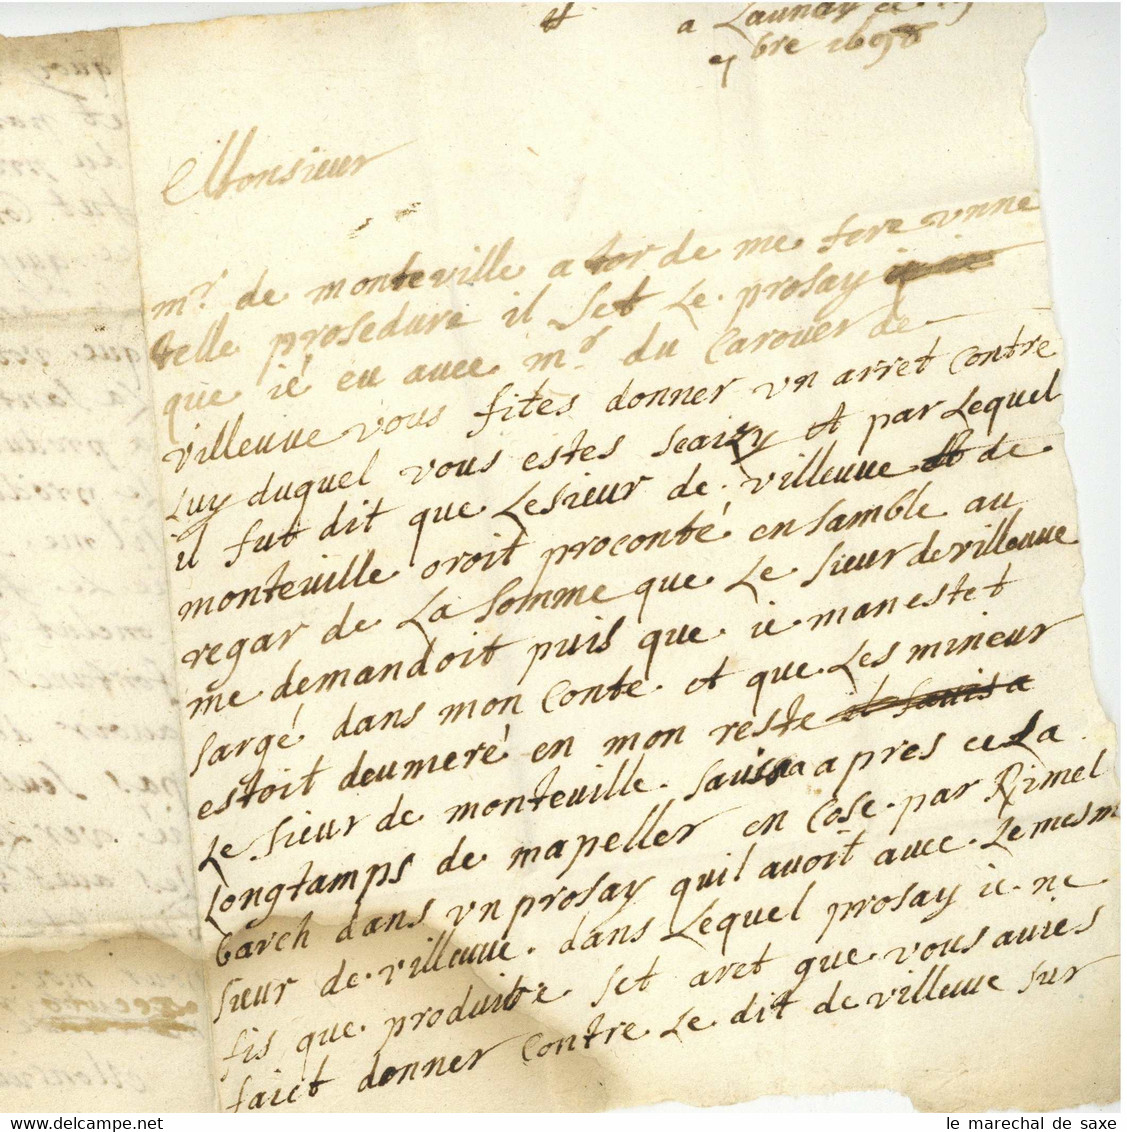 a Launay ce
7bre 1698
Monsieur
mr. de monteville a tor de me fere vnne
telle prosedure il set le prosay
que ié eu auec mr. du Carouer de
villeuue vous fites donner vn arret contre
luy duquel vous estes seaizy et par lequel
il fut dit que lesieur de villeuue et de
monteuille oroit proconté ensamble au
regar de la somme que le sieur devilleuue
me demandoit puis que ie man estet
sargé dans mon conte et que les mineur
estoit deumeré en mon reste
le sieur de monteuille sauisa apres cela
longtamps de mapeller en cose par Rimel
barch dans vn prosay quil auoit auec le mesm
sieur de villeuue dans lequel prosay ie ne
fis que produire set aret que vous auies
faict donner contre le dit de villeuue sur
le marechal de saxe